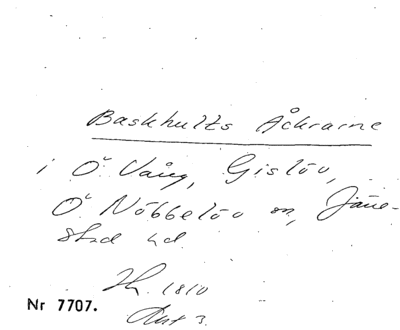 Baskhults Åckrarne
i Ö. Vång, Gislöv,
Ö. Nöbbelöv m, Järre-
stad hd
1810
Nr 7707.
Akt 3.